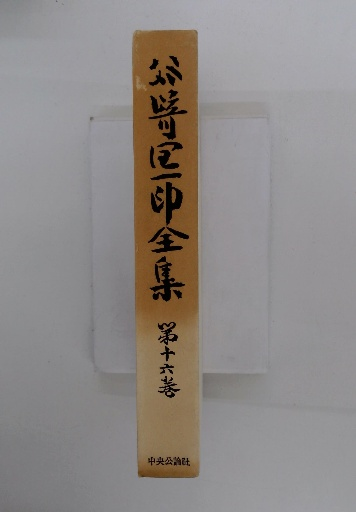 谷崎潤一郎全集
第十六巻
中央公論社